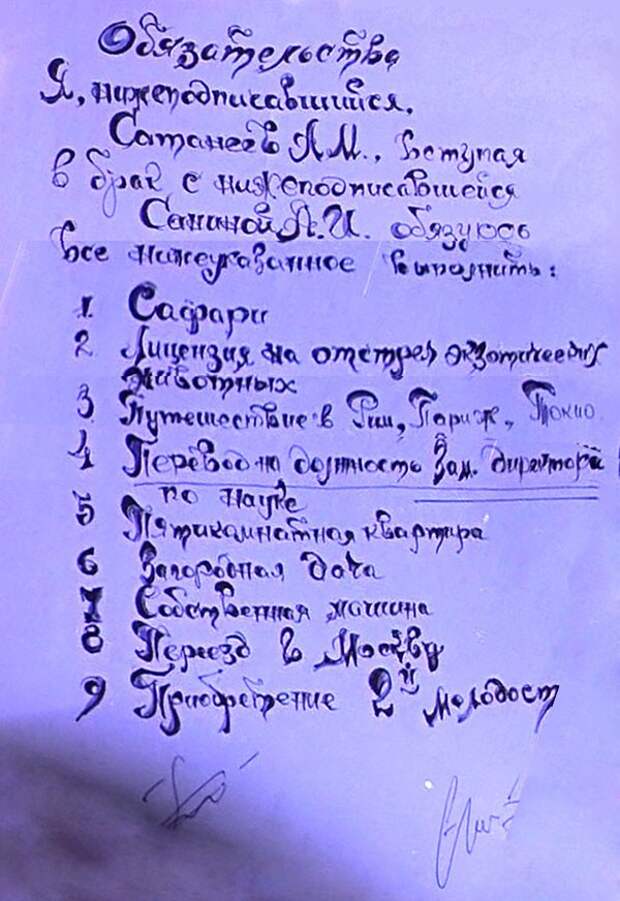 Обязательства
Я, нижеподписавшийся,
Сатанеев А.М., вступая
в брак с нижеподписавшейся
Саниной А.И. обязуюсь
все нижеуказанное выполнить:
1. Сафари
2 Лицензия на отстрел экзотических
животных
3 Путешествие в Рим, Париж, Токио
4 Перевод на должность Зам. директора
по науке
5 Пятикомнатная квартира
6 Загородная дача
7 Собственная машина
8 Переезд в Москву
9 Приобретение 2й молодост